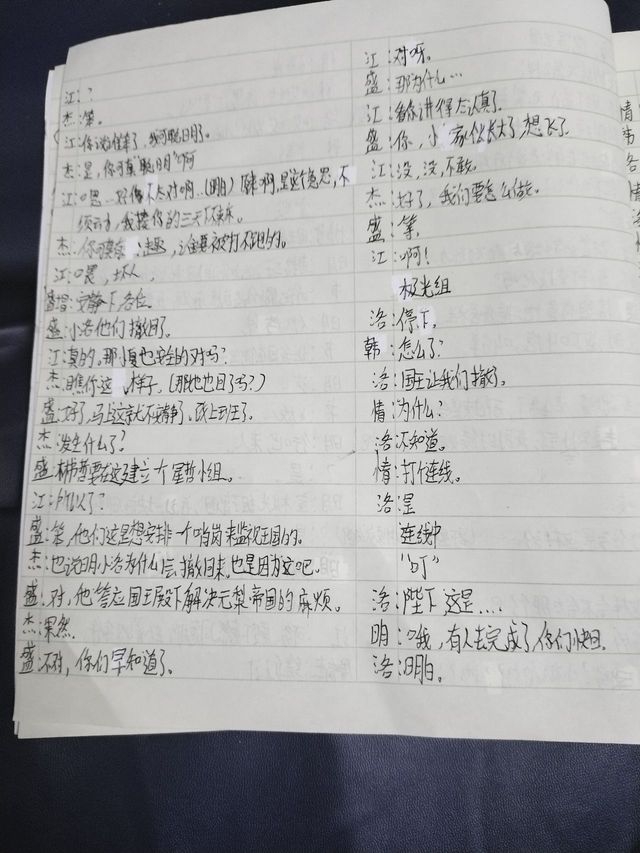 江：？
杰：笨。
江：你说谁笨了，我可聪明了。
杰：是，你可真"聪明"啊
江：嗯…好像不太对啊…（明白）原来啊，是这个意思，不
须云才，我揍你的三天下不来床。
杰：你可要 趣，让金莫被打不里的。
江：喂，坏人
盛哲：安静下各位
盛：小洛他们撤回了。
江：真的，那小夏也安全的对吗？
杰：瞧你这 样子，（那他也回了吗？）
盛：好了，马上这就不安静了，纸上到王了。
杰：发生什么了？
盛：林哲要在这建立一个星哲小组。
江：所以了？
盛：笨，他们这是想安排一个哨岗来监视王国的。
杰：也说明小洛为什么会撤回来，也是因为这吧。
盛：对，他答应国王殿下解决无梨帝国的麻烦。
杰：果然。
盛：不对，你们早知道了。
江：对呀。
盛：那为什么…
江：看你讲得太认真了。
盛：你，小 家伙长大了，想飞了
江：没，没，不敢。
杰：好了，我们要怎么做。
盛：等。
江：啊！
极光组
洛：停下。
韩：怎么了？
洛：国王让我们撤了。
情：为什么？
洛：不知道。
情：打个连线。
洛：是
连线中
"叮"
洛：陛下 这是....
明：哦，有人去完成了，你们快回。
洛：明白。
情
韦
洛
洛